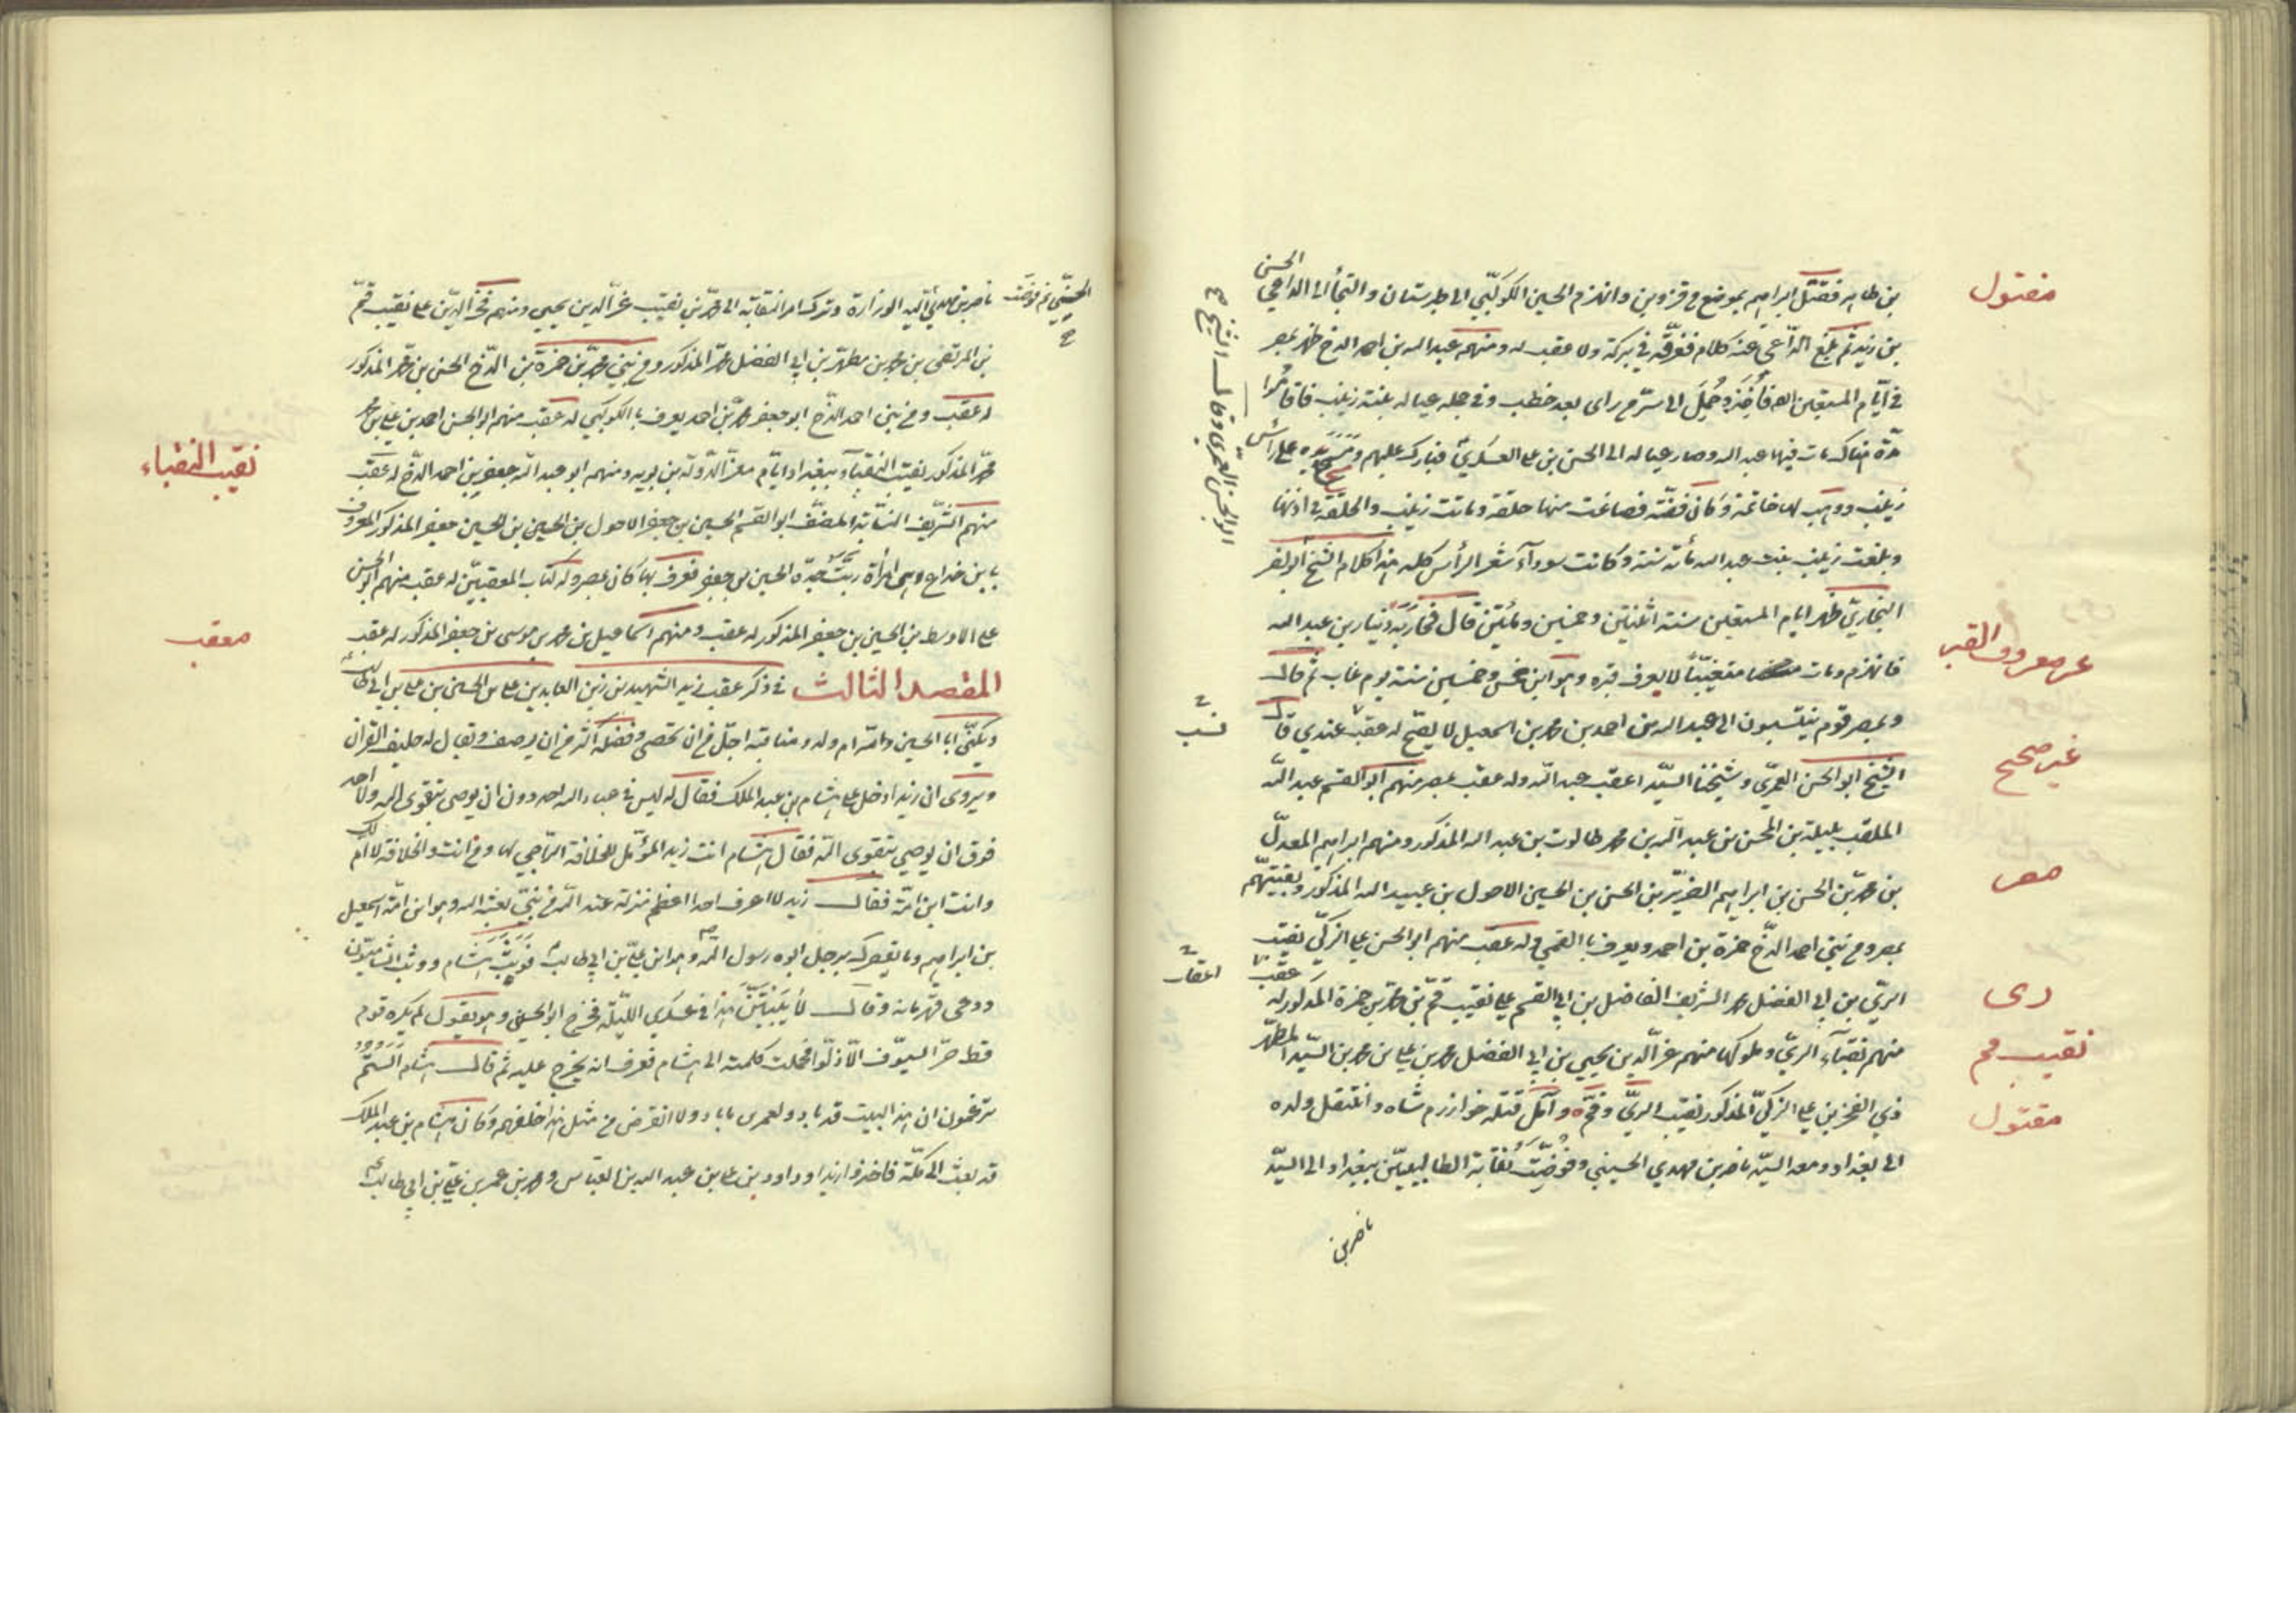 بن طاهر فقتل ابراهيم بموضع من قزوين وانهزم الحسين الكوكبي الى طبرستان والتجأ الى الداعي الحسن
بن زيد ثم بلغ الداعي عنه كلام فغرقه في بركة ولا عقب له ومنهم عبد الله بن احمد الدخ ظهر بمصر
في أيام المستعين فأخذ وحمل الى سر من راى بعد خطب وفي جملة عياله بنته زينب فاقاموا
مدة هناك مات فيها عبد الله وصار عياله الى الحسن بن على العسكري فبارك عليهم ومسح يده على رأس
زينب ووهب لها خاتمة وكان فضة فصاغت منها حلقة وماتت زينب والحلقة في اذنها
وبلغت زينب بنت عبد الله مأته سنة وكانت سوداء شعر الرأس كله هذا كلام الشيخ ابو الحسن العمري وقال الشيخ ابو نصر
البخاري ظهر ايام المستعين سنة اثنتين وخمسين ومأتين قال فحاربه دينار بن عبد الله
فانهزم ومات متغيبا لا يعرف قبره وهو ابن خمس وخمسين سنة يوم غاب ثم قال
وبمصر قوم ينتسبون الى عبد الله بن احمد بن محمد بن اسمعيل لا يصح له عقب عندي قال
الشيخ ابو الحسن العمري وشيخنا السيد اعقب عبد الله وله عقب بمصر منهم ابو القسم عبد الله
الملقب بليلة بن المحسن بن عبد الله بن محمد طالوت بن عبد الله المذكور ومنهم ابراهيم المعدل
بن محمد بن الحسن بن ابراهيم الضرير بن الحسن بن الحسين الاحول بن عبيد الله المذكور وبقيتهم
بمصر ومن بني احمد الدخ حمزة بن احمد ويعرف بالقمي له عقب منهم ابو الحسن على الزكي نقيب
الري بن ابي الفضل محمد الشريف الفاضل بن ابي القسم على نقيب قم بن محمد بن حمزة المذكور له عقب
منهم نقباء الري وملوكها منهم عز الدين يحيى بن ابي الفضل محمد بن على بن محمد بن السيد المطهر
ذي الفخرين على الزكي المذكور نقيب الري وقم وآمل قتله خوارزم شاه وانتقل ولده
الى بغداد ومعه السيد ناصر بن مهدي الحسيني وفوضت نقابة الطالبيين ببغداد الى السيد
ناصر بن
مقتول
غير معروف القبر
غير صحيح
مصر
رى
نقيب قم
مقتول
ناصر بن مهدي اليه الوزارة وترك امر النقابة الى محمد بن نقيب عز الدين يحيى ومنهم فخر الدين على نقيب قم
بن المرتضى بن محمد بن مطهر بن ابي الفضل محمد المذكور ومن بني محمد بن حمزة بن الدخ الحسن بن محمد المذكور
له عقب ومن بني احمد الدخ ابو جعفر محمد بن احمد يعرف بالكوكبي له عقب منهم ابو الحسن احمد بن على بن محمد
محمد المذكور نقيب النقباء ببغداد ايام معز الدولة بن بويه ومنهم ابو عبد الله جعفر بن احمد الدخ له عقب
منهم الشريف النسابة المصنف ابو القسم الحسين بن جعفر الاحول بن الحسين بن جعفر المذكور المعروف
بابن خداع وهى امرأة ربت جده الحسين بن جعفر فعرف بها كان بمصر وله كتاب المعقبين له عقب منهم ابو الحسن
على الاوسط بن الحسين بن جعفر المذكور له عقب ومنهم اسماعيل بن محمد بن موسى بن جعفر المذكور له عقب
المقصد الثالث في ذكر عقب زيد الشهيد بن زين العابدين على بن الحسين بن على بن ابي طالب
ويكنى ابا الحسين وامه ام ولد ومناقبه اجل من ان تحصى وفضله اكثر من ان يوصف ويقال له حليف القرآن
ويروى ان زيدا دخل على هشام بن عبد الملك فقال له ليس في عباد الله احد دون ان يوصى بتقوى الله ولا احد
فوق ان يوصي بتقوى الله فقال هشام انت زيد المؤمل للخلافة الراجي لها وما انت والخلافة لا ام لك
وانت ابن امة فقال زيد لا اعرف احدا اعظم منزلة عند الله من نبي بعثه الله وهو ابن امة اسمعيل
بن ابراهيم وما يقصرك برجل ابوه رسول الله وهو ابن على بن ابي طالب فوثب هشام ووثب الشاميون
ودعى قهرمانه وقال لا يبيتن هذا في عسكري الليلة فخرج ابو الحسين وهو يقول لم يكره قوم
قط حر السيوف الا ذلوا فحملت كلمته الى هشام فعرف انه يخرج عليه ثم قال هشام ألستم
تزعمون ان اهل هذا البيت قد بادوا ولعمرى ما بادوا ولا انقرض من مثل هذا خلفهم وكان هشام بن عبد الملك
قد بعث الى مكة فاخذوا زيدا وداود بن على بن عبد الله بن العباس ومحمد بن عمر بن على بن ابي طالب
نقيب النقباء
معقب